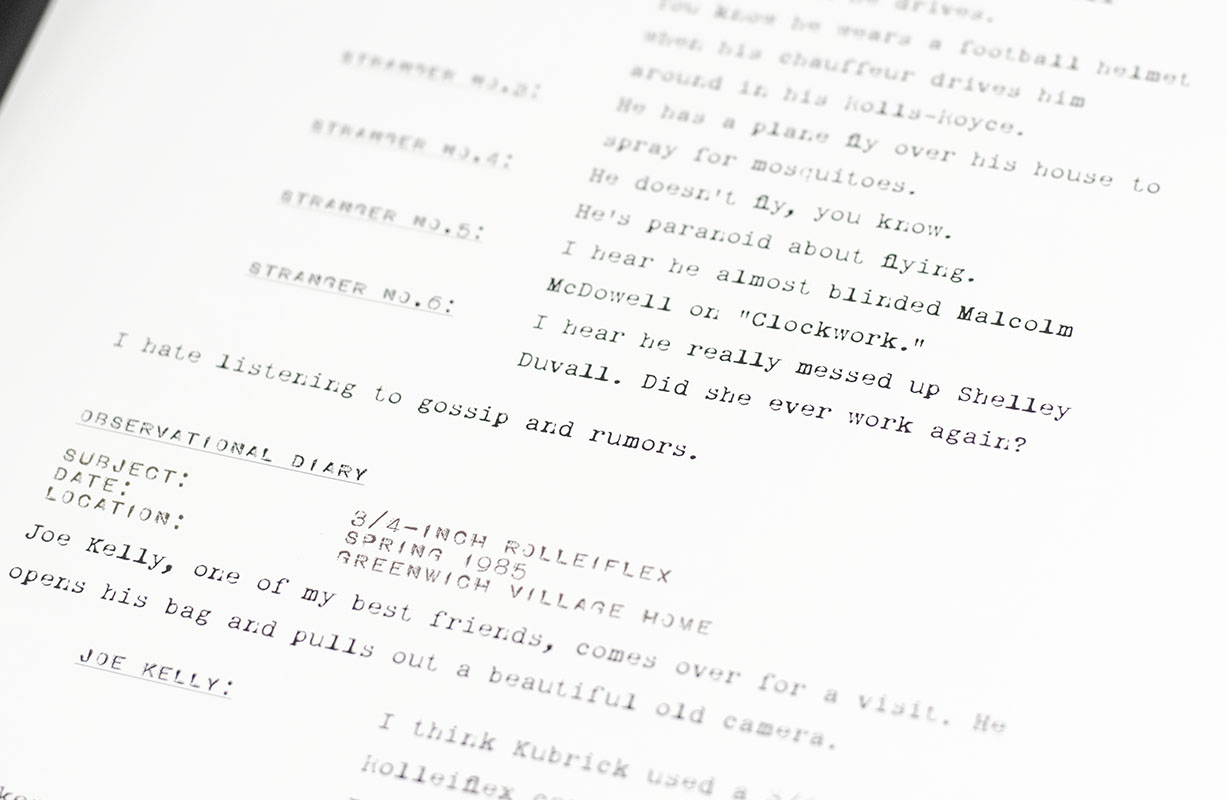 he drives.
You know he wears a football helmet
when his chauffeur drives him
around in his Rolls-Royce.
STRANGER NO.2:
He has a plane fly over his house to
spray for mosquitoes.
STRANGER NO.4:
He doesn't fly, you know.
He's paranoid about flying.
STRANGER NO.5:
I hear he almost blinded Malcolm
McDowell on "Clockwork."
STRANGER NO.6:
I hear he really messed up Shelley
Duvall. Did she ever work again?
I hate listening to gossip and rumors.
OBSERVATIONAL DIARY
SUBJECT: 3/4-INCH ROLLEIFLEX
DATE: SPRING 1985
LOCATION: GREENWICH VILLAGE HOME
Joe Kelly, one of my best friends, comes over for a visit. He
opens his bag and pulls out a beautiful old camera.
JOE KELLY:
I think Kubrick used a
Rolleiflex